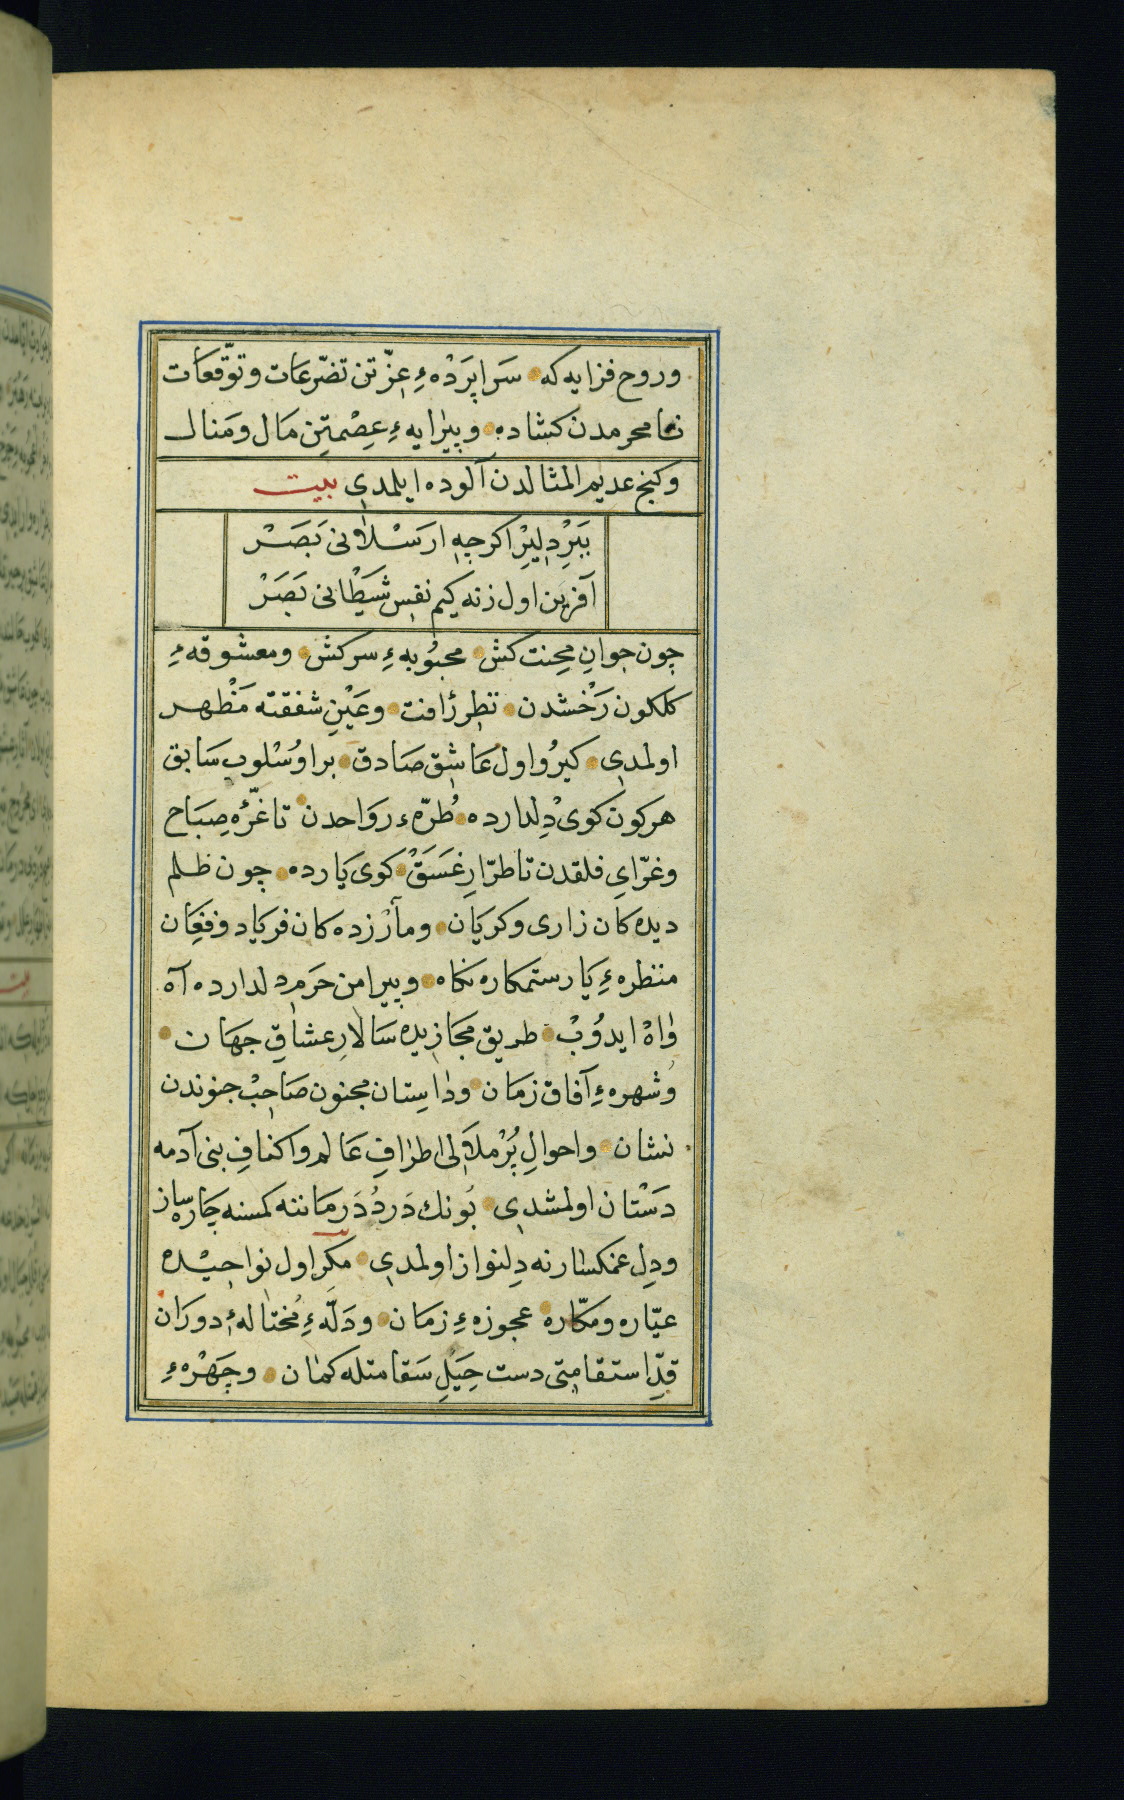 وروح فزایه كه سَراپَرْدهٔ عِزّتن تضرّعَات وتوقّعَات
نامحرمدن كشاده وپیرایهٔ عِصْمتِن مَال ومَنال
وكنج عدیم المثالدن آلوده ایلمدی بیت
بَبْرِ دِلیرْ اكرچه ارسْلانی بَصَرْ
آفرین اول زنه كیم نفس شَیْطانی بَصَرْ
چون جوانِ مِحنت كش محبُوبهٔ سركش ومعشوقهٔ
كلكون رَخْشدن نظر رأفت وعَیْنِ شفقته مَظْهر
اولمدی كیرُو اول عَاشق صَادق بر اوُسْلوب سَابق
هركون كویْ دِلدارده طُرّهٔ رَوَاحدن تا غُرّهٔ صِبَاح
وغرّایِ فلقدن تا طرّارِ غَسَقْ كوی یَارده چون ظلم
دیده كان زاری وكریَان ومارْزده كان فریَاد وففِغَان
منتظرهٔ یَار ستمكاره نكاه وپیرامن حَرَم دلدارده آه
وٰاهْ ایدُوبْ طریق مَجَازیده سَالارِ عشاقِ جهَان
وُشهرهٔ آفاق زمَان ودٰاستان مجنون صَاحبْ جنوندن
نشان واحوالِ پُرْ ملاَلی اطرٰافِ عَالم واكنافِ بنی آدمه
دَسْتان اولمشدی بُونك دَردُ دَرمَاننه كمسنه چَاره ساز
ودِل غمكسٰارنه دِلنواز اولمدی مكر اول نواحیْده
عیّاره ومكّاره عجوزهٔ زمَان ودَلّهٔ مُختالهٔ دورَان
قدِّ استقامتی دست حِیَلِ سَقامتله كمٰان وچَهْرهٔ